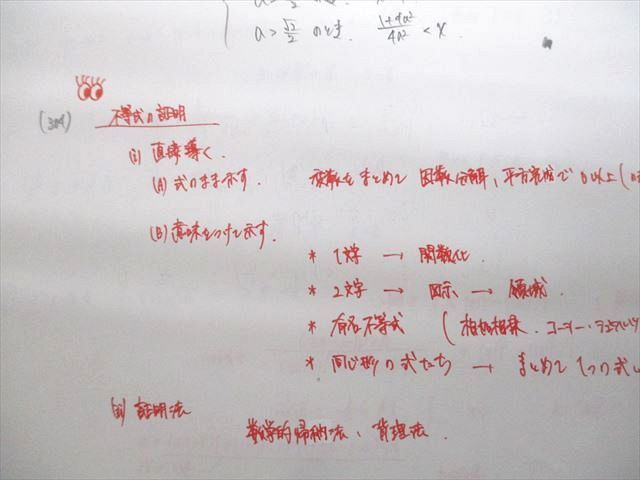 a > √2/2 のとき. (1+4a²)/(4a²) < x.
(304) 不等式の証明
(i) 直接導く.
(A) 式のまま示す. 変数をまとめて 因数分解, 平方完成で 0以上(
(B) 意味をつけて示す.
* 1文字 → 関数化.
* 2文字 → 図示 → 領域.
* 有名不等式 (相加相乗. コーシー・
* 同じ形の式たち → まとめて 1つの式
(ii) 証明法
数学的帰納法, 背理法.